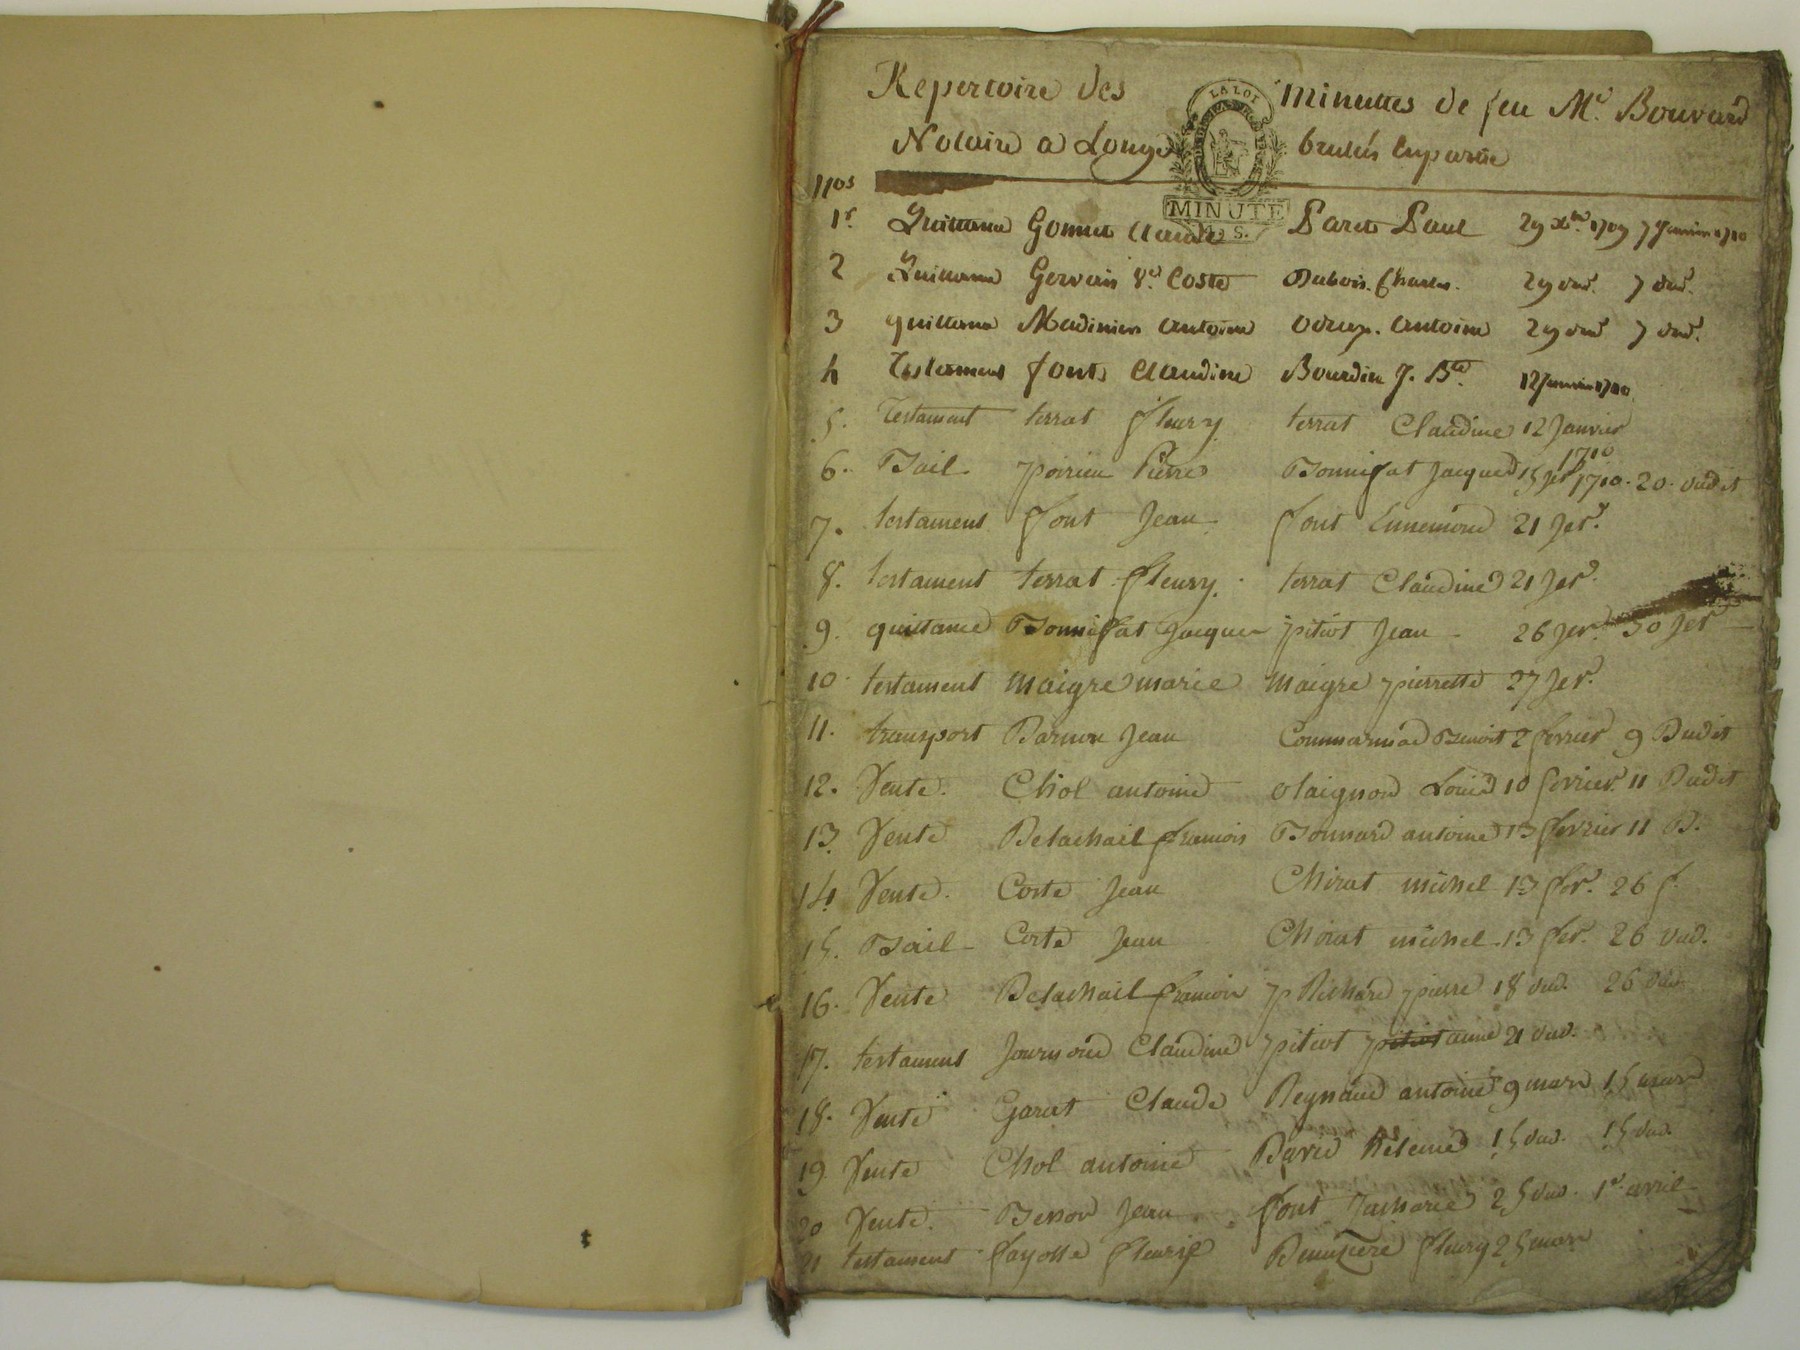 Repertoire des minuttes de feu Me. Bouvard
Notaire a Longe brulés en partie
LA LOI
MINUTE
nos
1r. Quittance Gonnet Claude Paret Paul 29 xbre. 1709 7 Janvier 1710
2 Quittance Gervais Ve. Coste Dubois Charles. 29 dud. 7 dud.
3 quittance Madinier antoine antoine 29 dud 7 dud.
4 Testament font Claudine Bourdin J. Bte. 12 Janvier 1710
5. Testament terrat fleury terrat Claudine 12 Janvier 1710
6. Bail poirieu Pierre Bonnefat Jacques 15 jer 1710. 20. dudit
7. testament font Jean font Ennemond 21 Jer.
8. testament terrat fleury. terrat Claudine 21 Jer.
9. quittance Bonnefat Jacques pitiot Jean 26 jer. 30 Jer
10. testament Maigre marie Maigre pierrette 27 Jer.
11. transport Jean Benoit 2 fevrier 9 Dudit
12. Vente. Chol antoine Louis 10 fevrier 11 Dudit
13. Vente Delachail francois Bonnard antoine 13 fevrier 11 D.
14. Vente. Coste Jean Chirat michel 13 fer. 26 f.
15. Bail Coste Jean Chirat michel 13 fer. 26 dud.
16. Vente Delachail francois pierre 18 dud. 26 dud
17. testament Journoud Claudine pitiot anne 21 dud.
18. Vente Garat Claude Reynaud antoine 9 mars 15 mars
19 Vente Chol antoine David helene 15 dud. 15 dud.
20 Vente. Besson Jean font Zacharie 25 dud. 1er. avril
21 testament fayolle fleurie fleury 25 mars